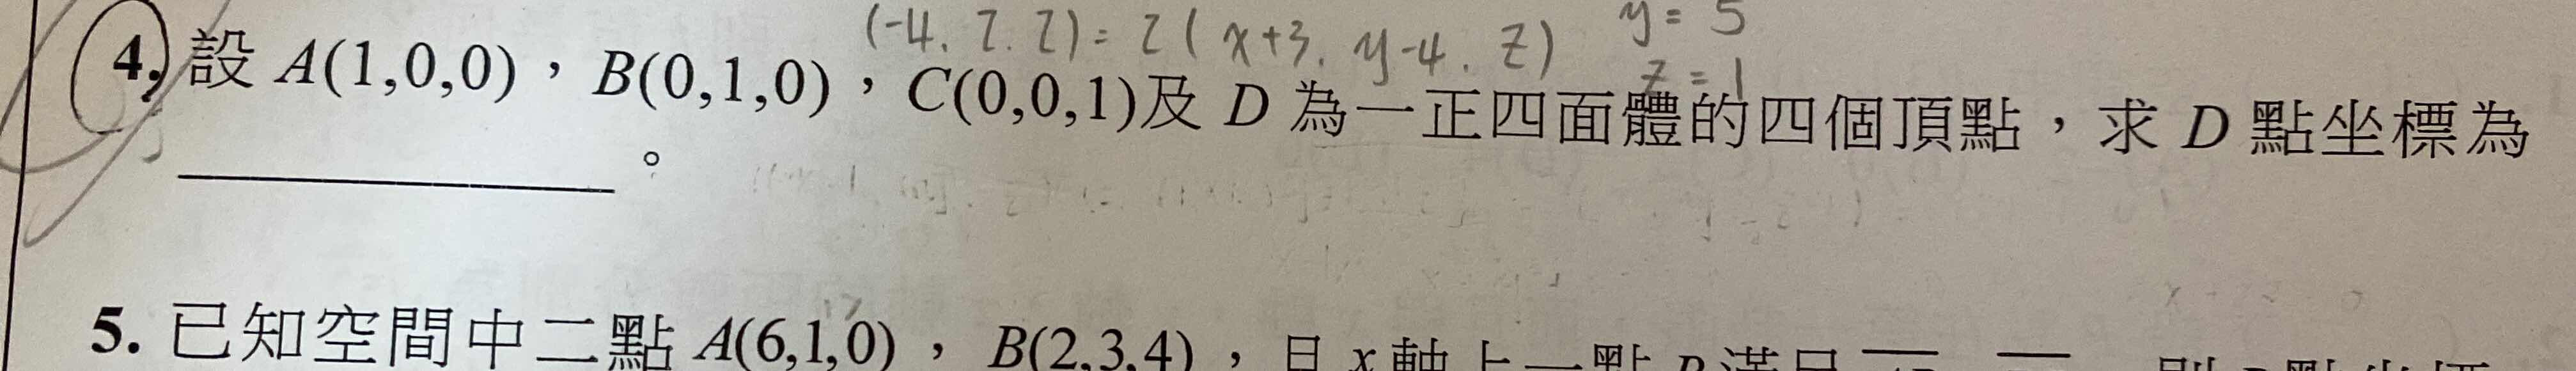 (-4. 2. 2) = 2 ( x+3. y-4. z) y = 5
z = 1
4. 設 A(1,0,0)，B(0,1,0)，C(0,0,1)及 D 為一正四面體的四個頂點，求 D 點坐標為
。
5. 已知空間中二點 A(6,1,0)，B(2,3,4)，且 x 軸上一點 P 滿足